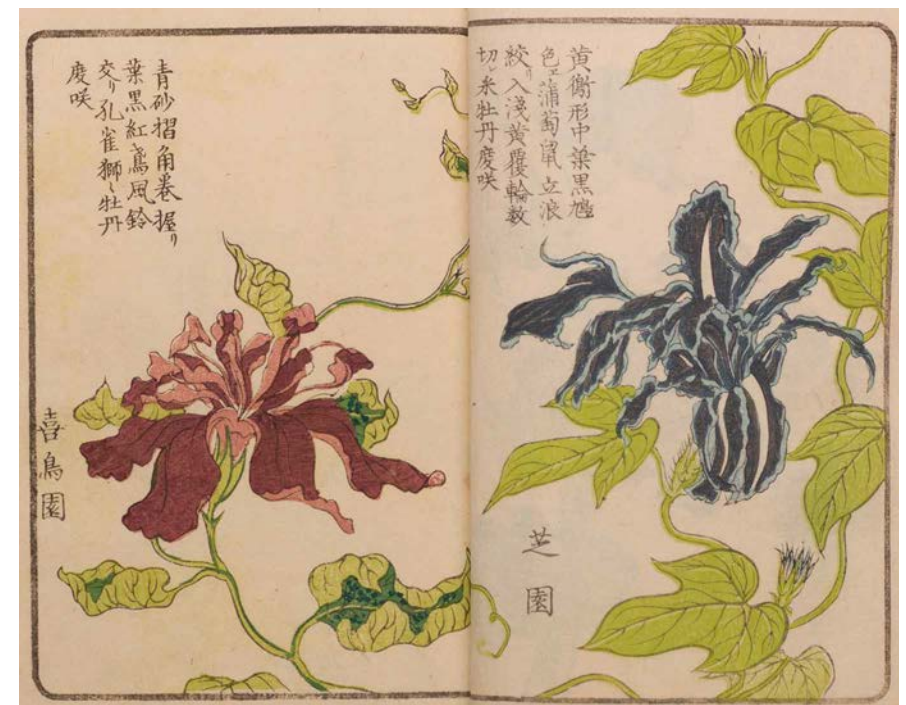 黄獅形中葉黒鳩
色エ蒲萄鼠立浪
絞リ入浅黄覆輪数
切レ糸牡丹度咲
芝園
青砂摺角巻握リ
葉黒紅ト鳶風鈴
交リ孔雀獅々牡丹
度咲
喜鳥園